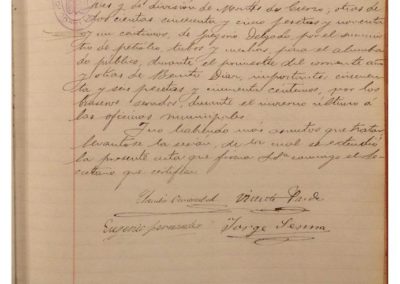 nes y del división de Montes de Cuero; otras de
doscientas cincuenta y cinco pesetas y noventa
y un centimos, de Gregorio Delgado por el suminis
tro de petroleo, tubos y mechas para el alumbra
do público, durante el primestre del corriente año
y otras de Benito Diaz, importantes cincuen
ta y seis pesetas y cincuenta centimos, por los
braseros servidos, durante el invierno ultimo á
las oficinas municipales.
Y no habiendo más asuntos que tratar,
levantóse la sesión, de lo cual se extendió
la presente acta que firma S.Sª conmigo el Se
cretario que certifica.
Vicente
Eugenio Fernandez Jorge